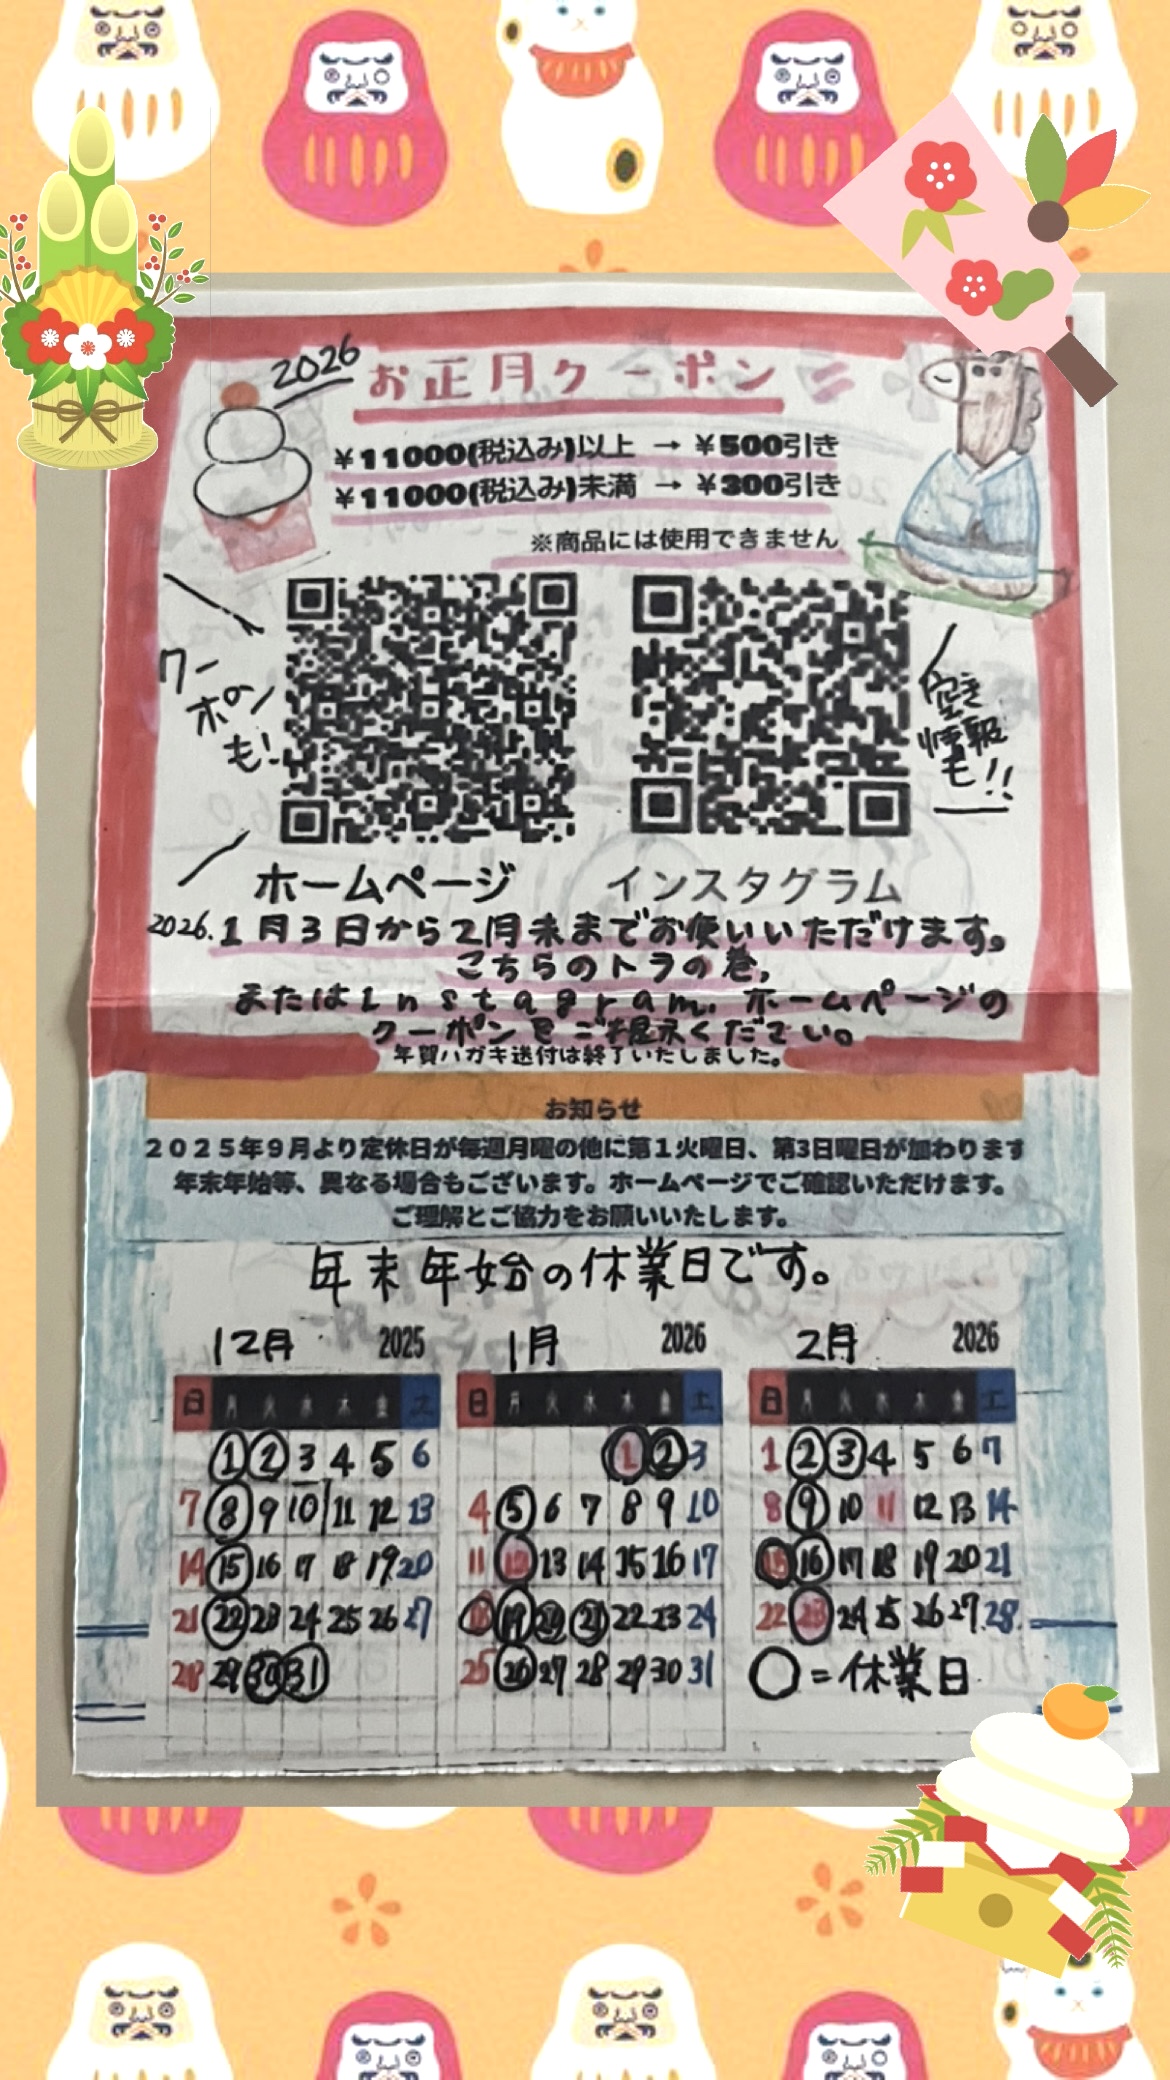 2026 お正月クーポン
¥11000(税込み)以上 → ¥500引き
¥11000(税込み)未満 → ¥300引き
※商品には使用できません
クー
ポン
も!
空き
情報
も!!
ホームページ
インスタグラム
2026.1月3日から2月末までお使いいただけます。
こちらのトラの巻,
またはInstagram.ホームページの
クーポンをご提示ください。
年賀ハガキ送付は終了いたしました。
お知らせ
2025年9月より定休日が毎週月曜の他に第1火曜日、第3日曜日が加わります
年末年始等、異なる場合もございます。ホームページでご確認いただけます。
ご理解とご協力をお願いいたします。
年末年始の休業日です。
12月 2025
日 月 火 水 木 金 土
1 2 3 4 5 6
7 8 9 10 11 12 13
14 15 16 17 18 19 20
21 22 23 24 25 26 27
28 29 30 31
1月 2026
日 月 火 水 木 金 土
1 2 3
4 5 6 7 8 9 10
11 12 13 14 15 16 17
18 19 20 21 22 23 24
25 26 27 28 29 30 31
2月 2026
日 月 火 水 木 金 土
1 2 3 4 5 6 7
8 9 10 11 12 13 14
15 16 17 18 19 20 21
22 23 24 25 26 27 28
○=休業日